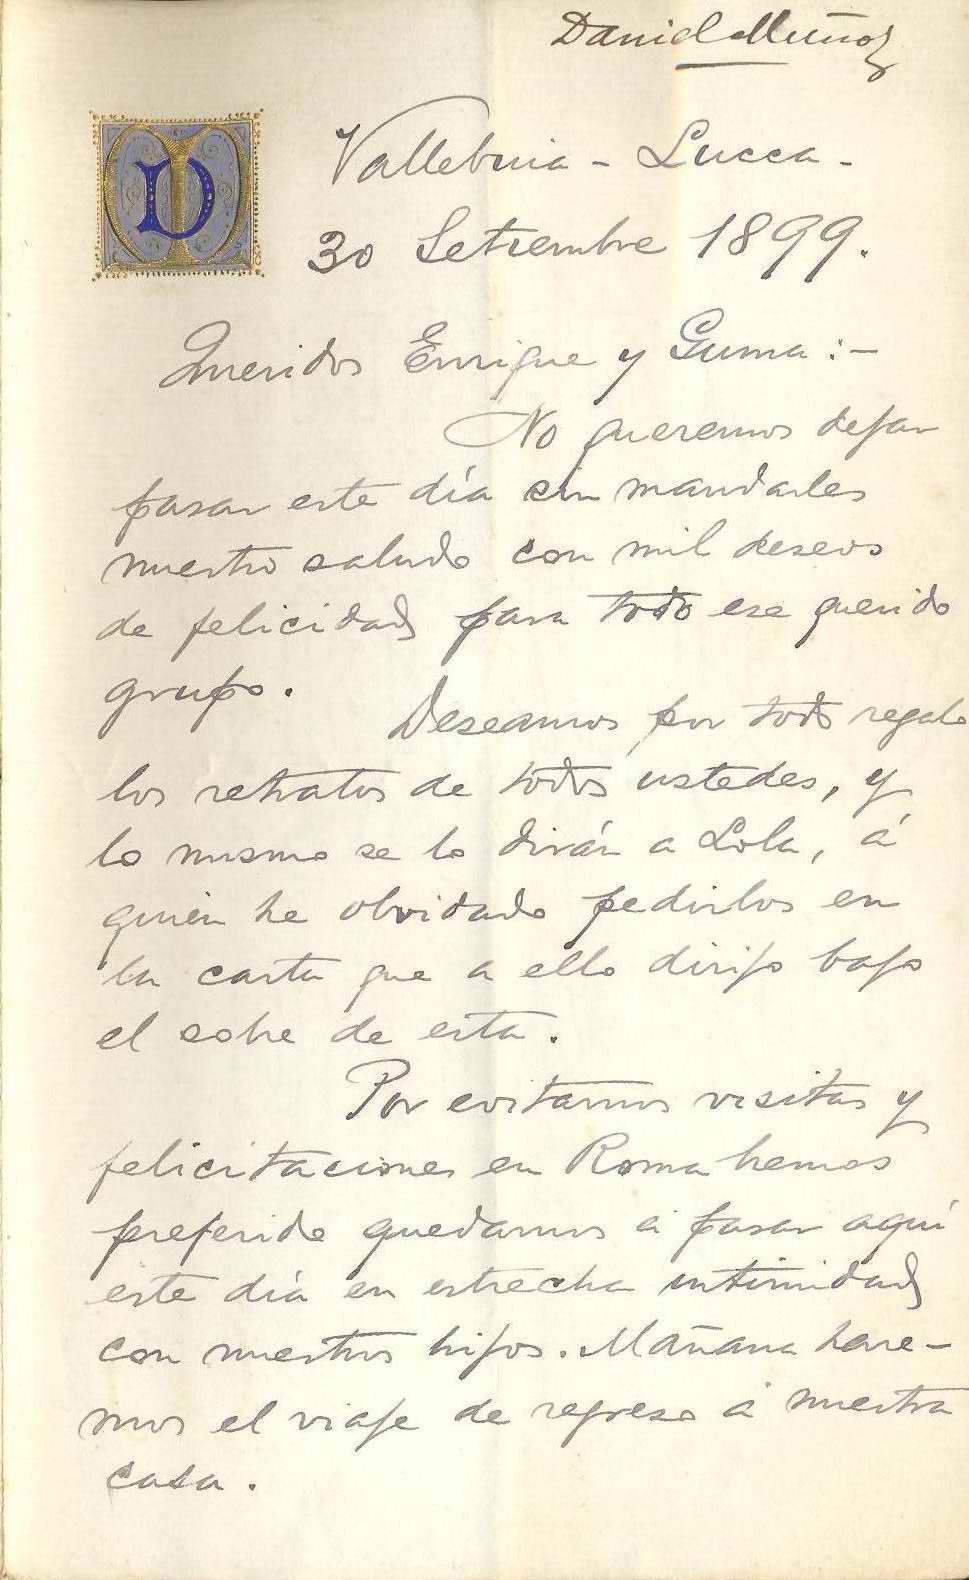 Daniel Muñoz
D M
Vallebuia - Lucca -
30 Setiembre 1899.
Queridos Enrique y Guma: -
No queremos dejar
pasar este día sin mandarles
nuestro saludo con mil deseos
de felicidad para todo ese querido
grupo.
Deseamos por todo regalo
los retratos de todos ustedes, y
lo mismo se lo dirán a Lola, á
quien he olvidado pedirlos en
la carta que a ella dirijo bajo
el sobre de esta.
Por evitarnos visitas y
felicitaciones en Roma hemos
preferido quedarnos a pasar aquí
este día en estrecha intimidad
con nuestros hijos. Mañana hare-
mos el viaje de regreso á nuestra
casa.